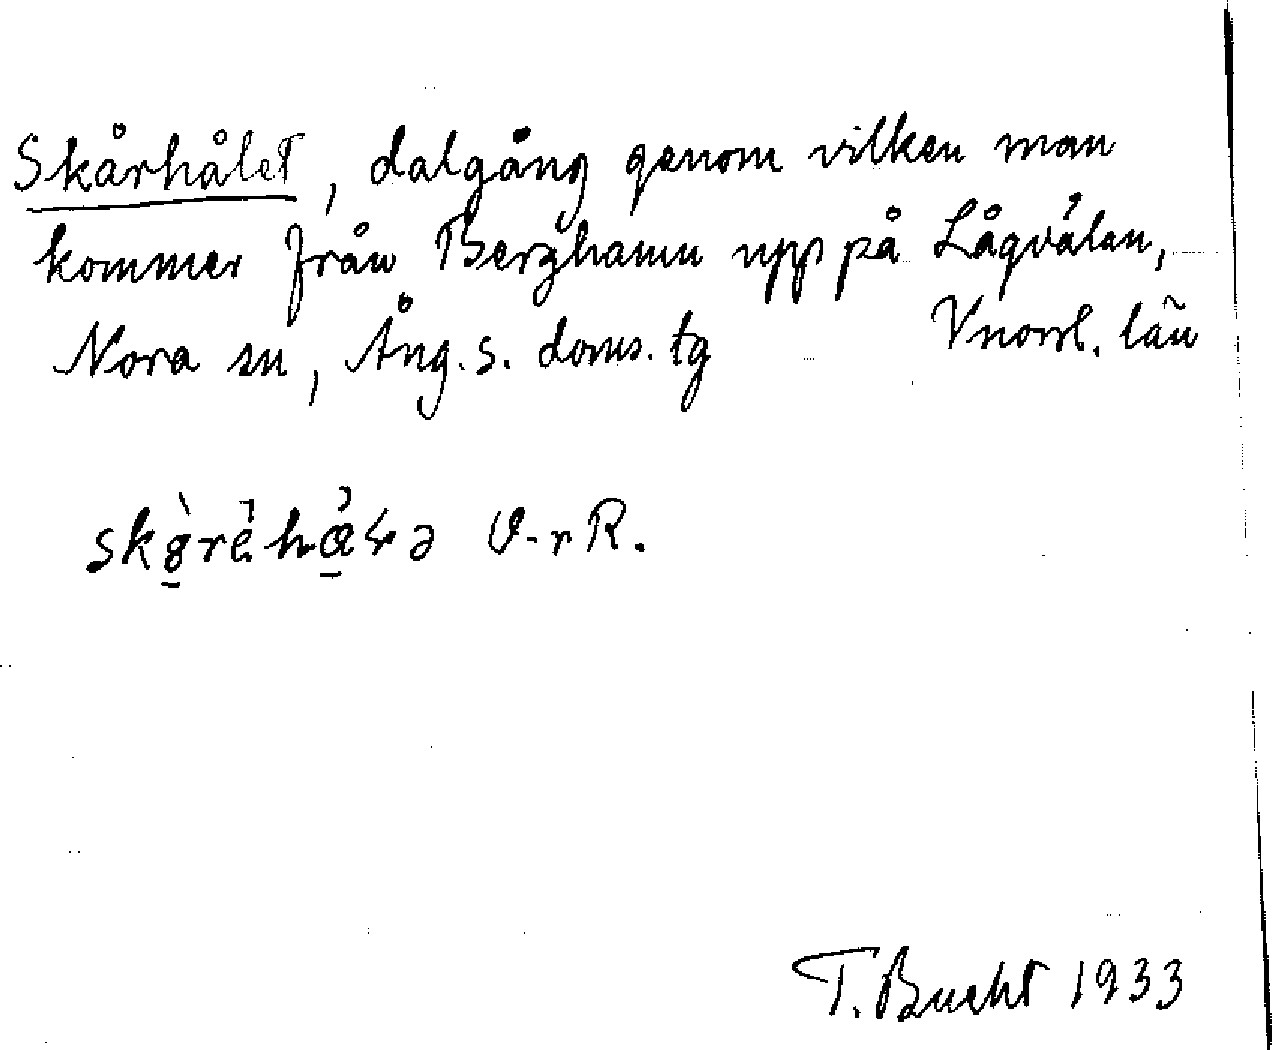 Skårhålet, dalgång genom vilken man
kommer från Berghamn upp på Lågvålen,
Nora sn, Ång. s. doms. tg Vnorrl. län
T. Bucht 1933